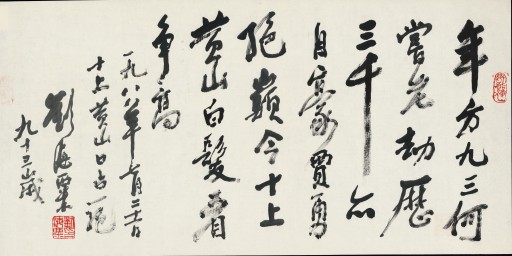 年方九三何
嘗老劫歷
三千亦
自豪賈勇
絕巔今十上
黄山白髮看
爭高
一九八八年七月二十一日
十上黄山口占一絕
劉海粟
九十三歲